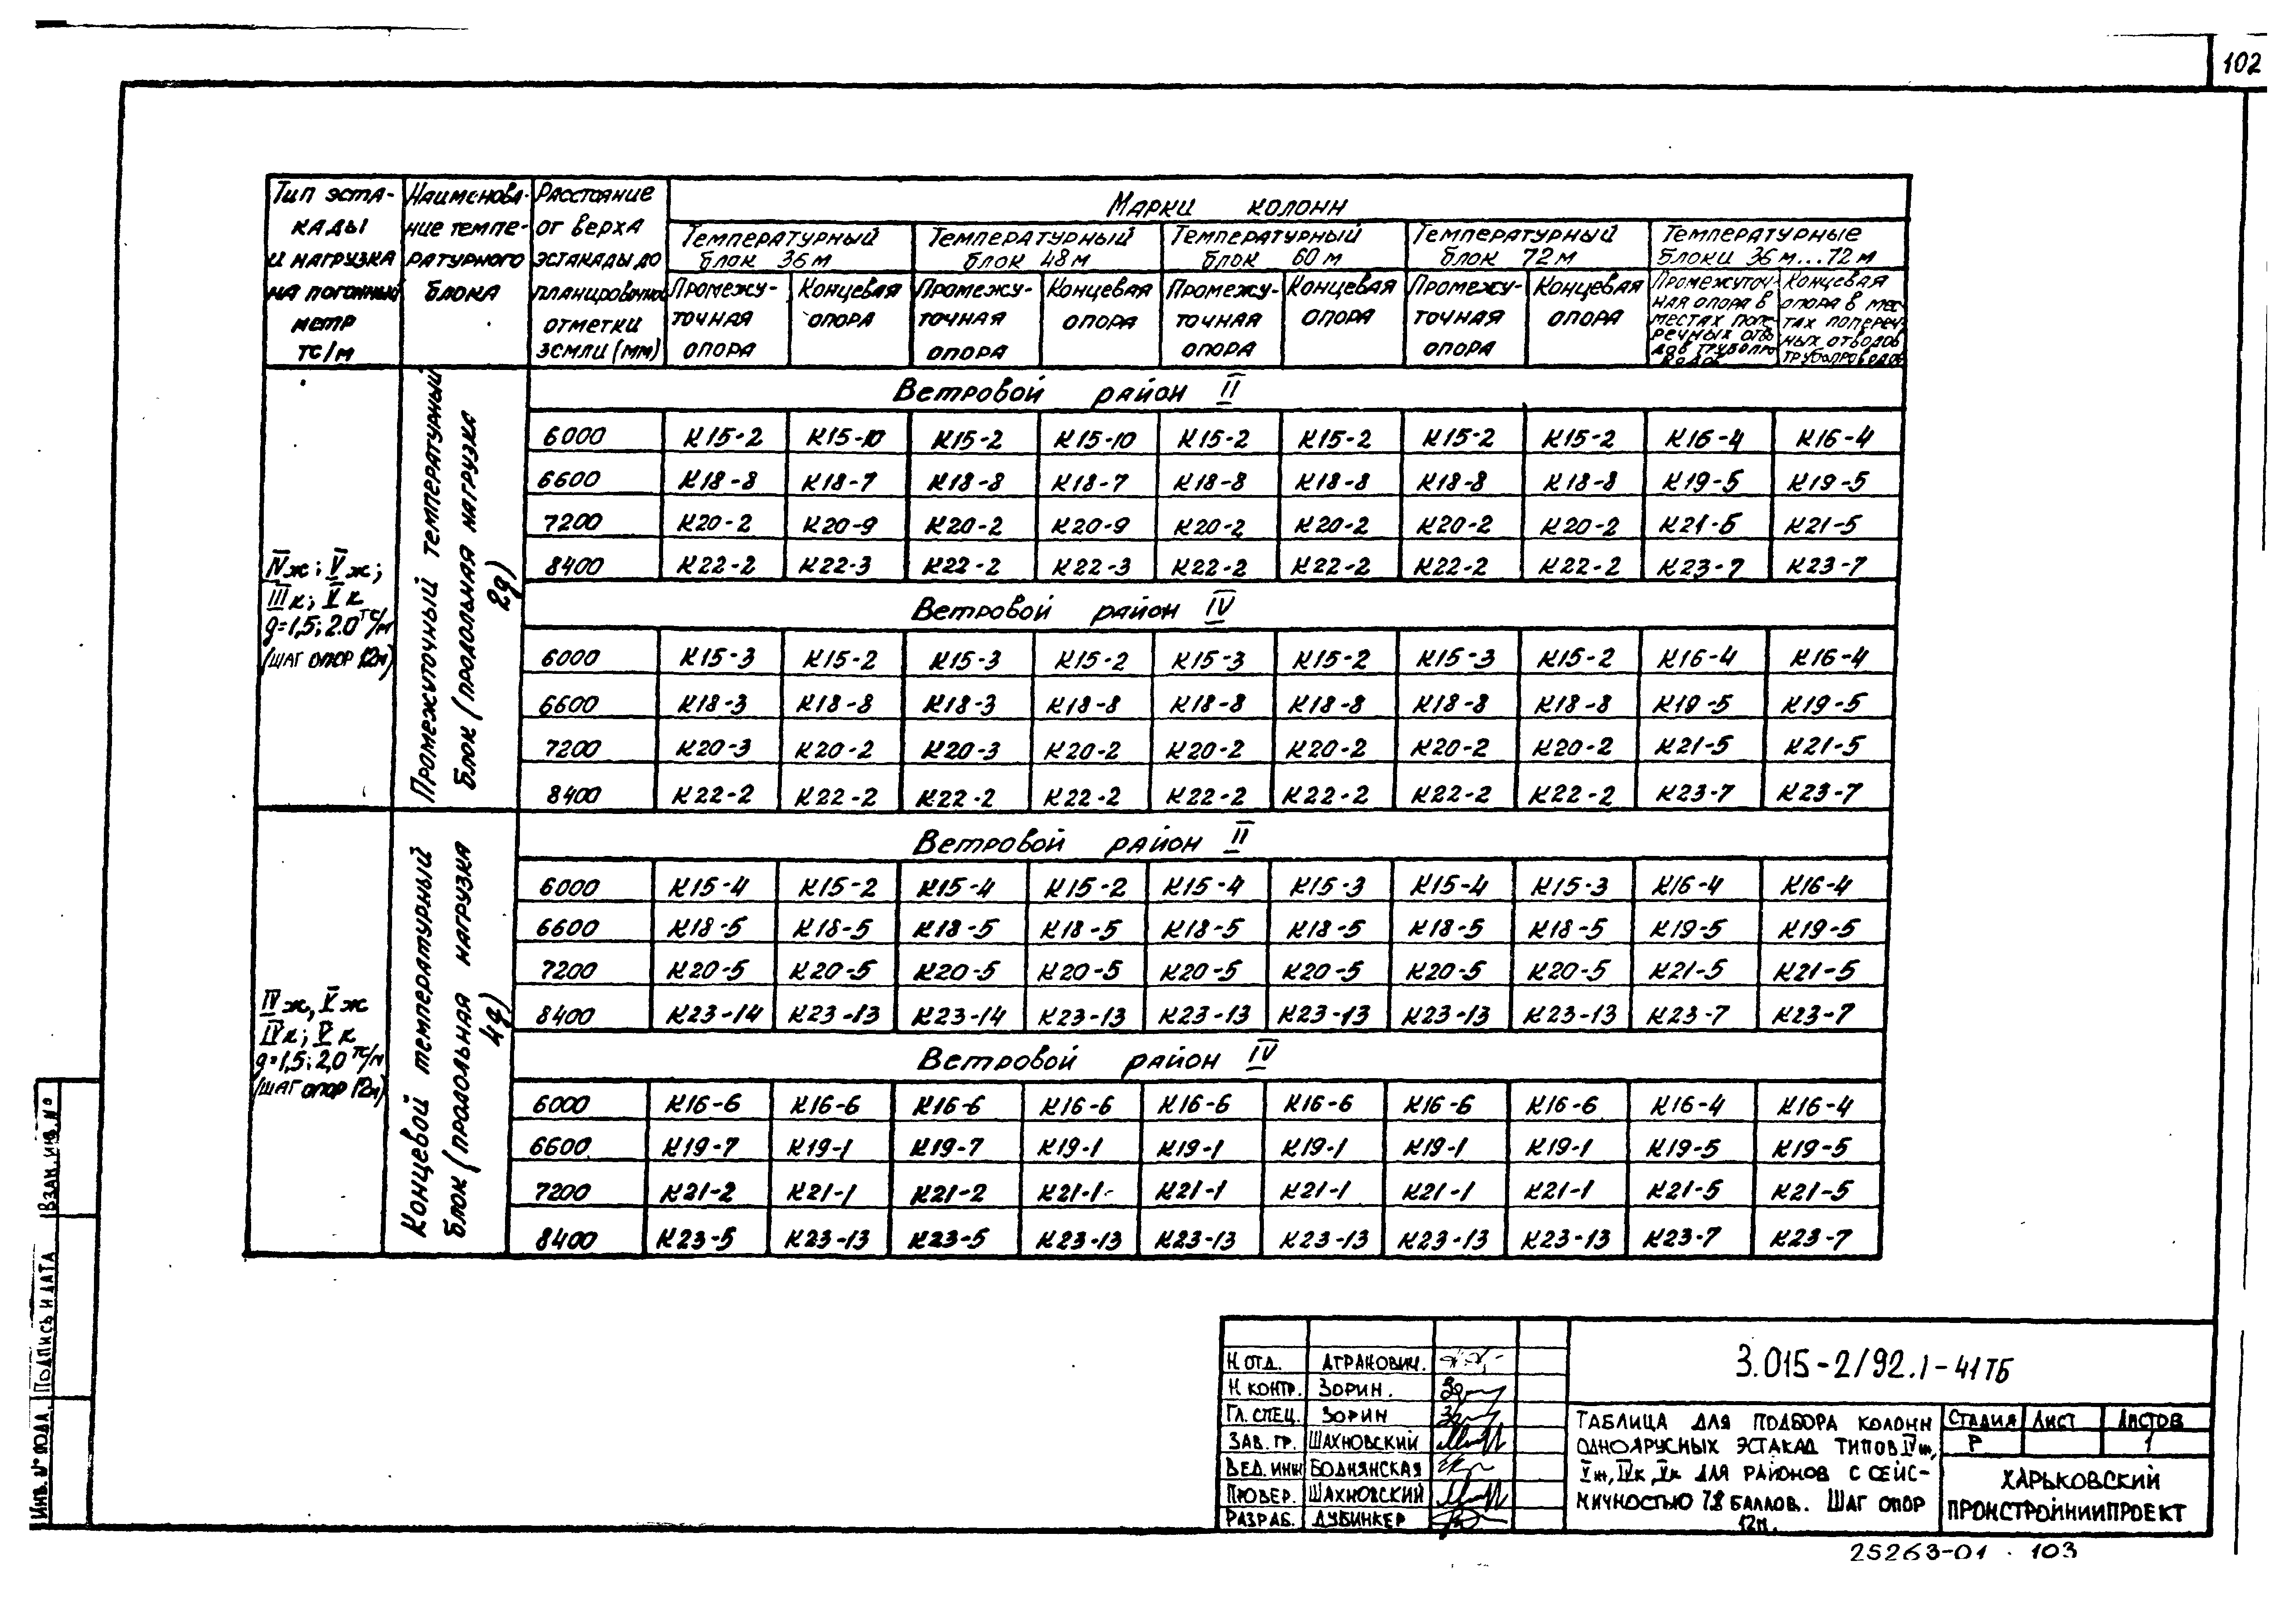 102
Тип эста-
кады
и нагрузка
на погонный
метр
тс/м
Наименова-
ние темпе-
ратурного
блока
Расстояние
от верха
эстакады до
планировочной
отметки
земли (мм)
Марки колонн
Температурный
блок 36м
Температурный
блок 48м
Температурный
блок 60м
Температурный
блок 72м
Температурные
блоки 36м...72м
Промежу-
точная
опора
Концевая
опора
Промежу-
точная
опора
Концевая
опора
Промежу-
точная
опора
Концевая
опора
Промежу-
точная
опора
Концевая
опора
Промежуточ-
ная опора в
местах попе-
речных отво-
дов трубопро-
водов
Концевая
опора в мес-
тах попереч-
ных отводов
трубопроводов
IVж; Vж;
IIIк; Vк
q=1,5; 2.0 тс/м
(шаг опор 12м)
Промежуточный температурный
блок (продольная нагрузка
2q)
Ветровой район II
6000 К15-2 К15-10 К15-2 К15-10 К15-2 К15-2 К15-2 К15-2 К16-4 К16-4
6600 К18-8 К18-7 К18-8 К18-7 К18-8 К18-8 К18-8 К18-8 К19-5 К19-5
7200 К20-2 К20-9 К20-2 К20-9 К20-2 К20-2 К20-2 К20-2 К21-5 К21-5
8400 К22-2 К22-3 К22-2 К22-3 К22-2 К22-2 К22-2 К22-2 К23-7 К23-7
Ветровой район IV
6000 К15-3 К15-2 К15-3 К15-2 К15-3 К15-2 К15-3 К15-2 К16-4 К16-4
6600 К18-3 К18-8 К18-3 К18-8 К18-8 К18-8 К18-8 К18-8 К19-5 К19-5
7200 К20-3 К20-2 К20-3 К20-2 К20-2 К20-2 К20-2 К20-2 К21-5 К21-5
8400 К22-2 К22-2 К22-2 К22-2 К22-2 К22-2 К22-2 К22-2 К23-7 К23-7
IVж, Vж
IVк; Vк
q=1,5; 2,0 тс/м
(шаг опор 12м)
Концевой температурный
блок (продольная нагрузка
4q)
Ветровой район II
6000 К15-4 К15-2 К15-4 К15-2 К15-4 К15-3 К15-4 К15-3 К16-4 К16-4
6600 К18-5 К18-5 К18-5 К18-5 К18-5 К18-5 К18-5 К18-5 К19-5 К19-5
7200 К20-5 К20-5 К20-5 К20-5 К20-5 К20-5 К20-5 К20-5 К21-5 К21-5
8400 К23-14 К23-13 К23-14 К23-13 К23-13 К23-13 К23-13 К23-13 К23-7 К23-7
Ветровой район IV
6000 К16-6 К16-6 К16-6 К16-6 К16-6 К16-6 К16-6 К16-6 К16-4 К16-4
6600 К19-7 К19-1 К19-7 К19-1 К19-1 К19-1 К19-1 К19-1 К19-5 К19-5
7200 К21-2 К21-1 К21-2 К21-1 К21-1 К21-1 К21-1 К21-1 К21-5 К21-5
8400 К23-5 К23-13 К23-5 К23-13 К23-13 К23-13 К23-13 К23-13 К23-7 К23-7
Инв. № подл. Подпись и дата Взам. инв. №
Н. отд. Агранович.
Н контр. Зорин.
Гл. спец. Зорин
Зав. гр. Шахновский
Вед. инж Боднянская
Провер. Шахновский
Разраб. Дубинкер
3.015-2/92.1-41ТБ
Таблица для подбора колонн
одноярусных эстакад типов IVж,
Vж, IVк, Vк для районов с сейс-
мичностью 7,8 баллов. Шаг опор
12м.
Стадия Лист Листов
Р 1
Харьковский
Промстройниипроект
25263-01 103